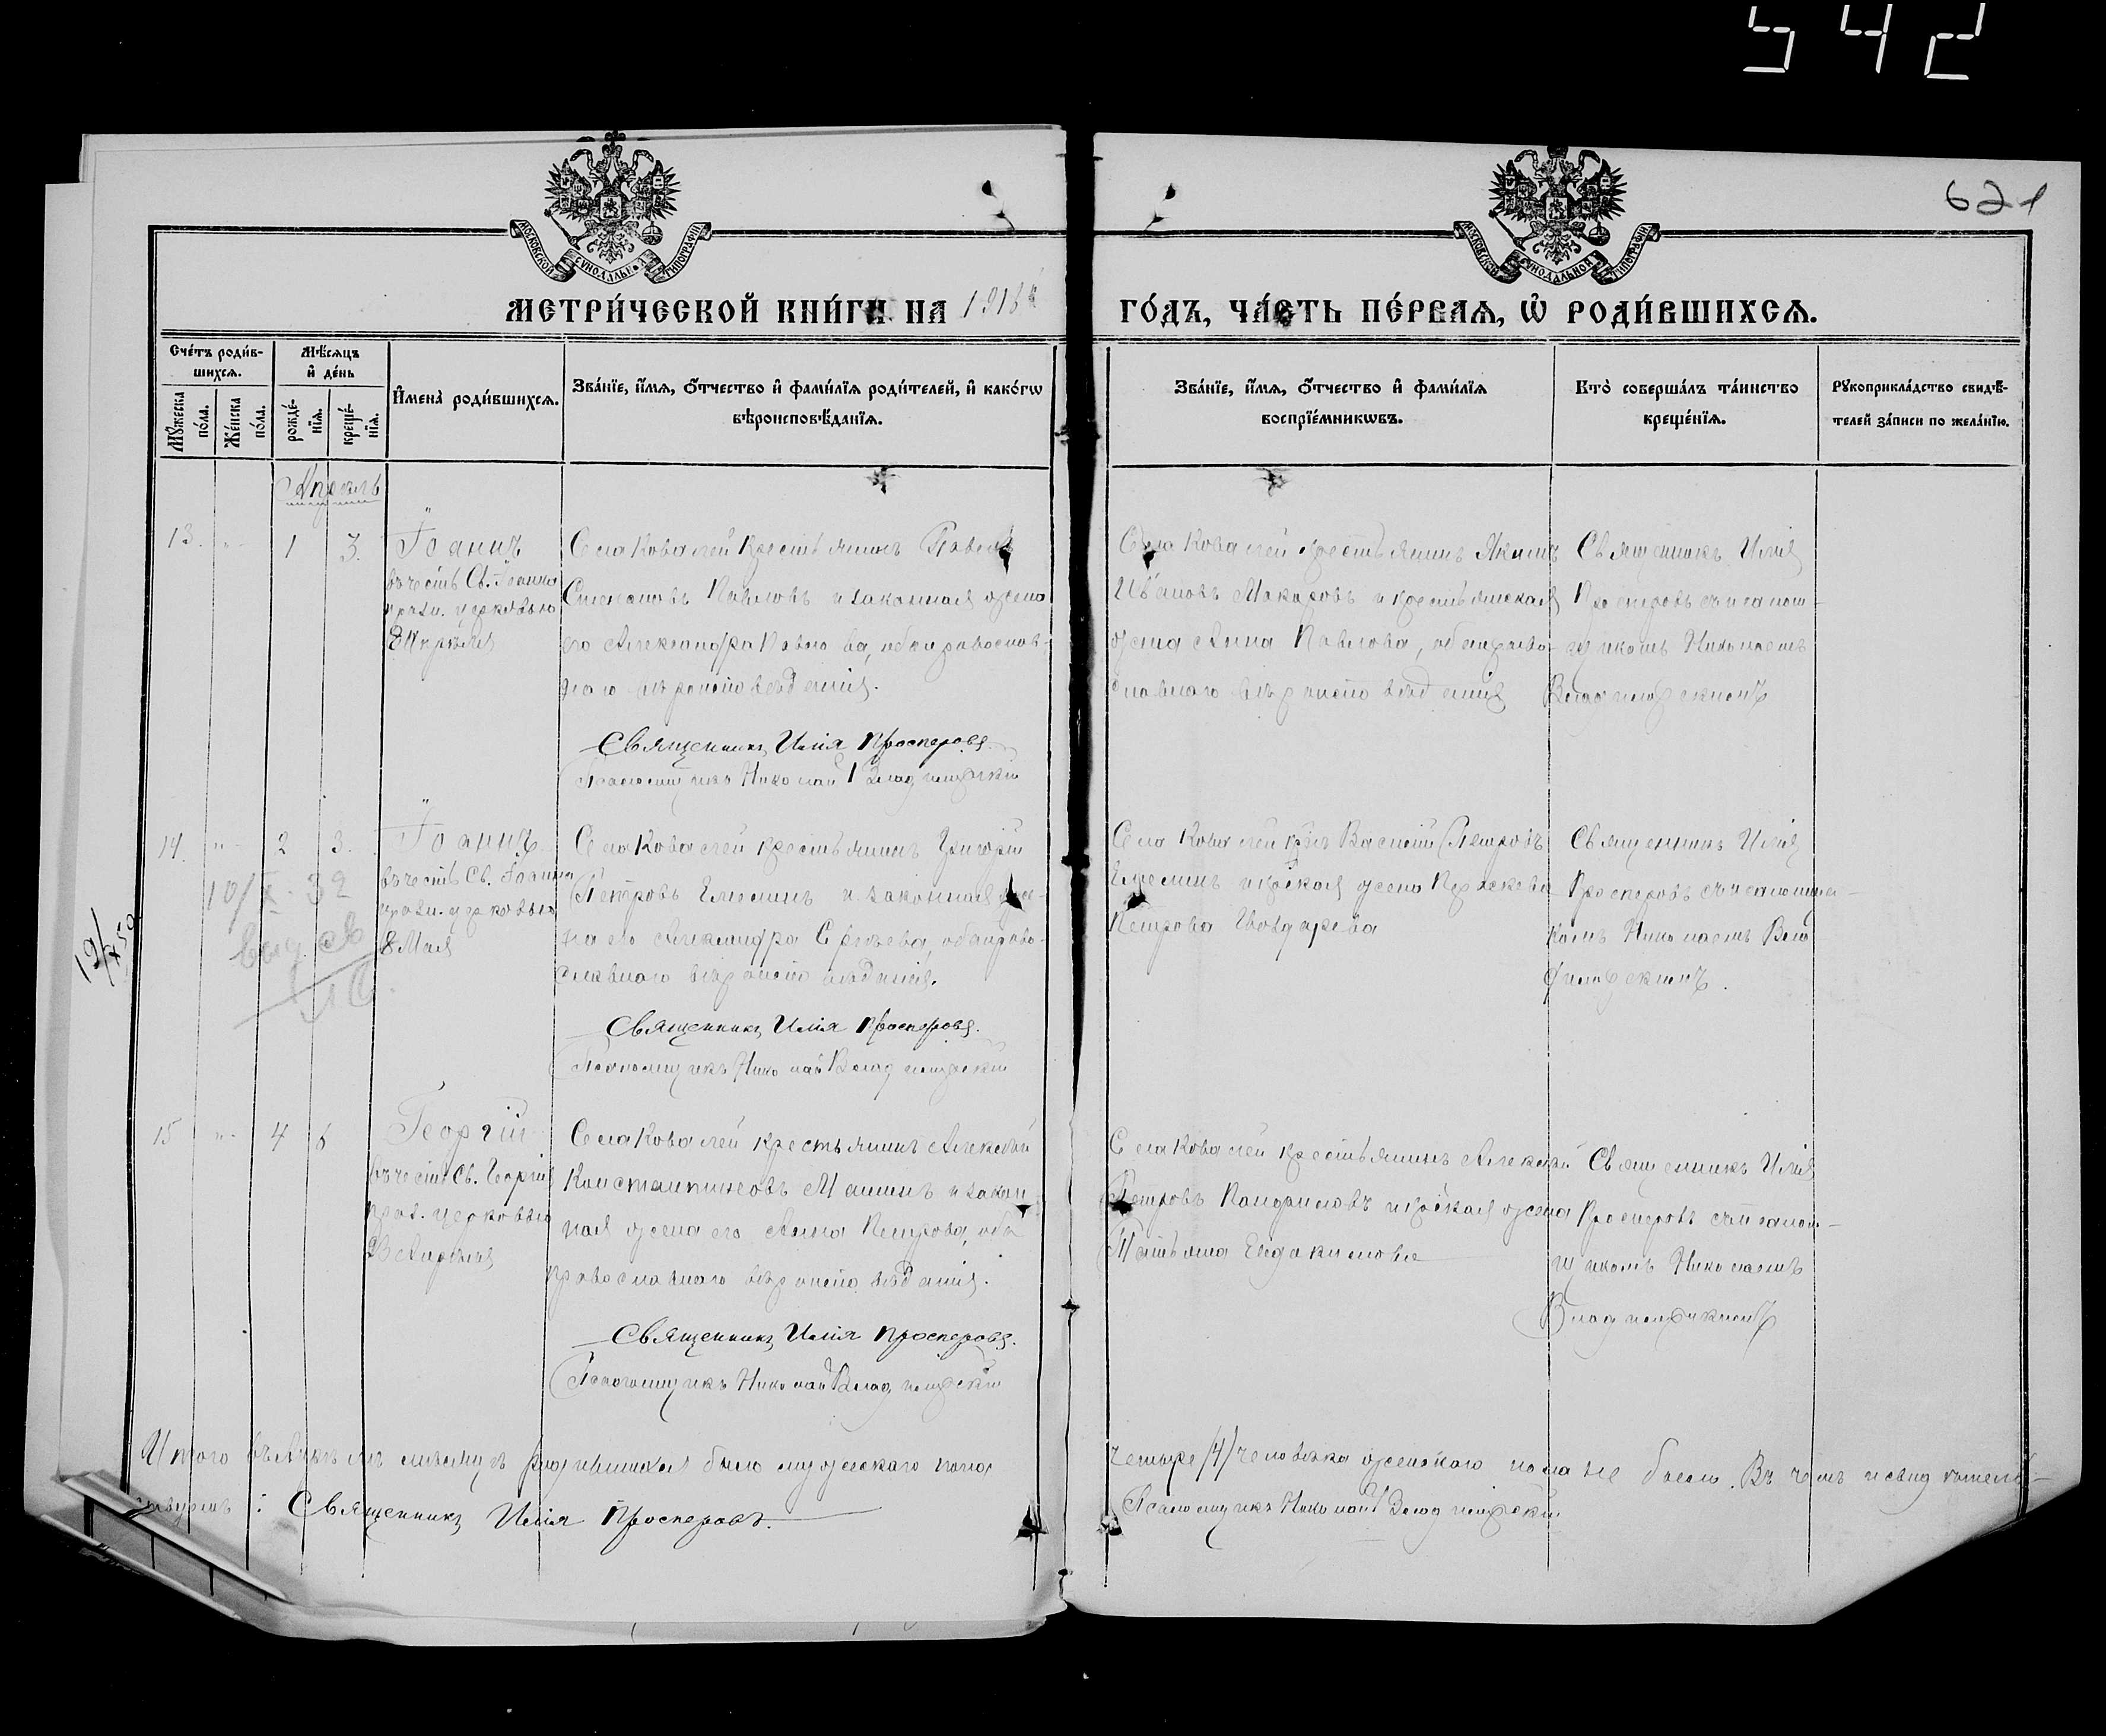 542
621
МОСКОВСКОЙ СУНОДАЛЬНОЙ ТИПОГРАФІИ
МОСКОВСКОЙ СУНОДАЛЬНОЙ ТИПОГРАФІИ
МЕТРИ́ЧЕСКОЙ КНИ́ГИ НА
ГО́ДЪ, ЧА́СТЬ ПЕ́РВАЯ, Ѡ҆ РОДИ́ВШИХСЯ.
Сче́тъ роди́в-
шихся.
Мꙋ́жеска по́ла.
Же́нска по́ла.
Мѣ́сяцъ и҆ де́нь
рожде́-
нїя.
креще́-
нїя.
И҆мена̀ роди́вшихся.
Зва́нїе, и҆́мя, ѻ҆́тчество и҆ фами́лїя роди́телей, и҆ како́гѡ
вѣроисповѣ́данїя.
Зва́нїе, и҆́мя, ѻ҆́тчество и҆ фами́лїя
воспрїе́мникѡвъ.
Кто̀ соверша́лъ та́инство
креще́нїя.
Рꙋкоприкла́дство свидѣ́-
телей за́писи по жела́нїю.
Апрѣль
13. " 1 3.
Іоаннъ
въ честь Св. Іоанна
празн. церковью
Села Ковалей крестьянинъ Павелъ
Степановъ Павловъ и законная жена
его Александра Павлова, оба православ-
наго вѣроисповѣданія.
Священникъ Илія Просперовъ
Псаломщикъ Николай Владимірскій
Села Ковалей крестьянинъ Якимъ
Ивановъ Макаровъ и крестьянская
жена Анна Павлова, оба право-
славнаго вѣроисповѣданія
Священникъ Илія
Просперовъ съ псалом-
щикомъ Николаемъ
Владимірскимъ
14. " 2 3.
Іоаннъ
въ честь Св. Іоанна
празн. церковью
8 Мая
10/X-32
выд. св
Села Ковалей крестьянинъ Григорій
Петровъ Емелинъ и законная же-
на его Александра Сергѣева, оба право-
славнаго вѣроисповѣданія.
Священникъ Илія Просперовъ.
Псаломщикъ Николай Владимірскій
Села Ковалей кр-нъ Василій Петровъ
Емелинъ и кр-ская жена Параскева
Петрова
Священникъ Илія
Просперовъ съ псаломщи-
комъ Николаемъ Вла-
димірскимъ.
15 " 4 6
Георгій
въ честь Св. Георгія
праз. церковью
23 Апрѣля
Села Ковалей крестьянинъ Алексѣй
Константиновъ и закон-
ная жена его Анна Петрова, оба
православнаго вѣроисповѣданія.
Священникъ Илія Просперовъ.
Псаломщикъ Николай Владимірскій
Села Ковалей крестьянинъ Алексѣй
Петровъ и кр-ская жена
Татьяна Евдокимова
Священникъ Илія
Просперовъ съ псалом-
щикомъ Николаемъ
Владимірскимъ
Итого въ Апрѣлѣ мѣсяцѣ родившихся было мужескаго пола
четыре /4/ человѣка женскаго пола не было. Въ чемъ и свидѣтель-
ствуемъ: Священникъ Илія Просперовъ.
Псаломщикъ Николай Владимірскій